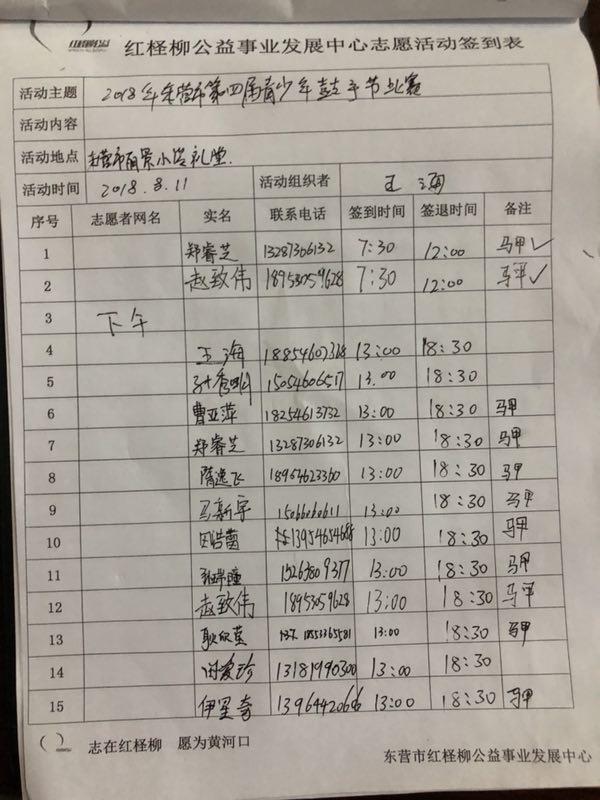 红柽柳公益事业发展中心志愿活动签到表
活动主题 2018年东营市第四届青少年鼓手节比赛
活动内容
活动地点 东营市丽景小学礼堂.
活动时间 2018.8.11 活动组织者 王海
序号 志愿者网名 实名 联系电话 签到时间 签退时间 备注
1 郑睿芝 13287306132 7:30 12:00 马甲✓
2 赵致伟 18953059628 7:30 12:00 马甲✓
3 下午
4 王海 13:00 18:30
5 15054606517 13.00 18:30
6 曹亚萍 18254613732 13:00 18:30 马甲
7 郑睿芝 13287306132 13:00 18:30 马甲
8 隋逸飞 13:00 18:30 马甲
9 马新宇 13:00 18:30 马甲
10 13954654688 13:00 18:30 马甲
11 13:00 18:30 马甲
12 赵致伟 18953059628 13:00 18:30 马甲
13 耿欣莹 13:00 18:30 马甲
14 田爱珍 13181990300 13:00 18:30
15 伊星奇 13964420686 13:00 18:30 马甲
志在红柽柳 愿为黄河口
东营市红柽柳公益事业发展中心